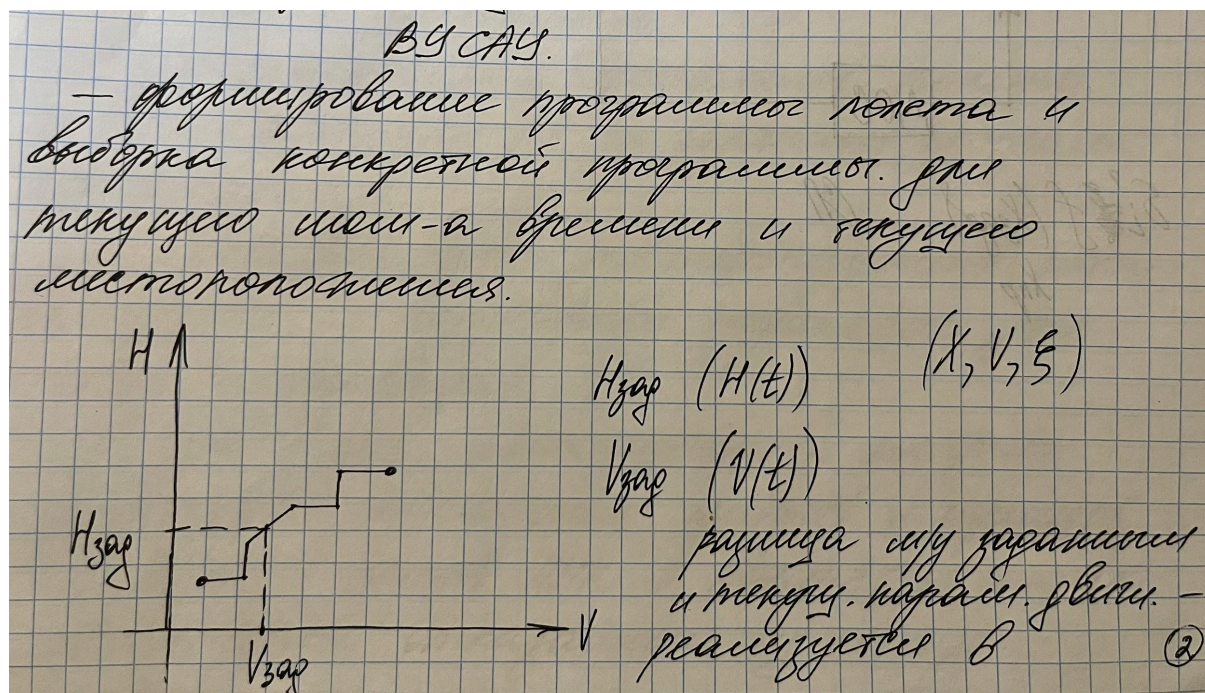 ВУ САУ.
— формирование программы полета и
выборка конкретной программы. для
текущего мом-а времени и текущего
местоположения.
H
Hзад (H(t))
(X, V, ξ)
Vзад (V(t))
Hзад
разница м/у заданным
и текущ. парам. движ. –
реализуется в
V
Vзад
2